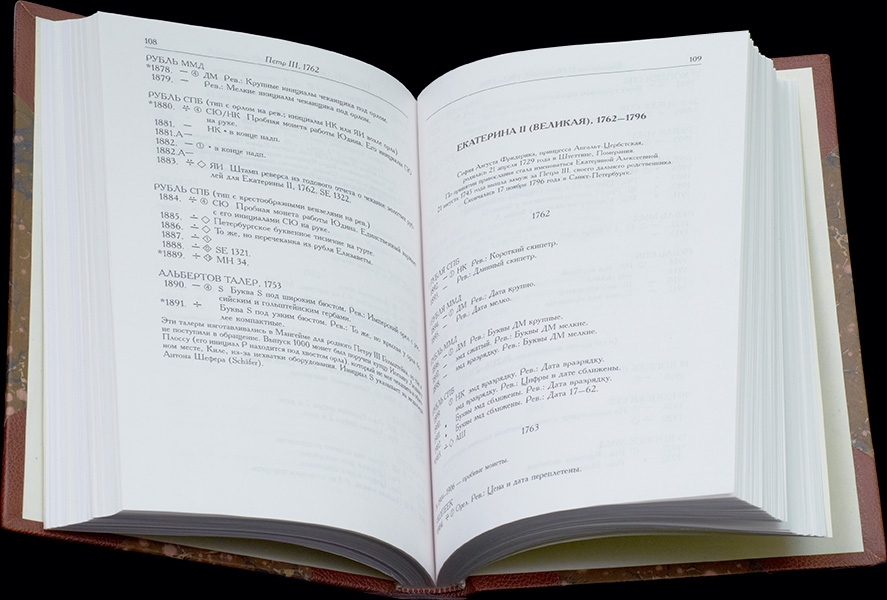 108
Петр III, 1762
РУБЛЬ ММД
*1878. — ④ ДМ Рев.: Крупные инициалы чеканщика под орлом.
1879. — Рев.: Мелкие инициалы чеканщика под орлом.
РУБЛЬ СПБ (тип с орлом на рев.; инициалы НК или ЯИ возле орла)
*1880. ④ СЮ/НК Пробная монета работы Юдина. Его инициалы СЮ
на руке.
1881. — НК • в конце надп.
1881.А—
1882. — ① • в конце надп.
1882.А—
1883. ◇ ЯИ. Штамп реверса из годового отчета о чеканке
лей для Екатерины II, 1762, SE 1322.
РУБЛЬ СПБ (тип с крестообразными вензелями на рев.)
1884. ④ СЮ Пробная монета работы Юдина. Единственный
с его инициалами СЮ на руке.
1885. — ◇ Петербургское буквенное тиснение на гурте.
1886. ◇ То же, но перечеканка из рубля Елизаветы.
1887.
1888. SE 1321.
*1889. МН 34.
АЛЬБЕРТОВ ТАЛЕР, 1753
1890. — ④ S Буква S под широким бюстом. Рев.: Имперский орел с
сийским и гольштейнским гербами.
*1891. Буква S под узким бюстом. Рев.: То же, но крылья у орла
лее компактные.
Эти талеры изготавливались в Мангейме для родного Петру III
не поступили в обращение. Выпуск 1000 монет был поручен купцу
Плоссу (его инициал P находится под хвостом орла), который не мог
ном месте, Киле, из-за нехватки оборудования. Инициал S указывает на
Антона Шефера (Schäfer).
109
ЕКАТЕРИНА II (ВЕЛИКАЯ), 1762—1796
София Августа Фридерика, принцесса Ангальт-Цербстская,
родилась 21 апреля 1729 года в Штеттине, Померания
По принятии православия стала именоваться Екатериной Алексеевной.
21 августа 1745 года вышла замуж за Петра III, своего дальнего родственника
Скончалась 17 ноября 1796 в Санкт-Петербурге.
1762
РУБЛЯ СПБ
НК Рев.: Короткий скипетр.
Рев.: Длинный скипетр.
РУБЛЯ ММД
ДМ Рев.: Дата крупно.
Рев.: Дата мелко.
РУБЛЬ ММД
ДМ Рев.: Буквы ДМ крупные.
ммд сжатый. Рев.: Буквы ДМ мелкие.
ммд вразрядку. Рев.: Буквы ДМ мелкие.
РУБЛЬ СПБ
НК ммд вразрядку. Рев.: Дата вразрядку.
ммд вразрядку. Рев.: Цифры в дате сближены.
Буквы ммд сближены. Рев.: Дата вразрядку.
Буквы ммд сближены. Рев.: Дата 17—62.
ЯИ
1763
1906 — пробные монеты.
КОПЕЕК
Орел. Рев.: Цена и дата переплетены.